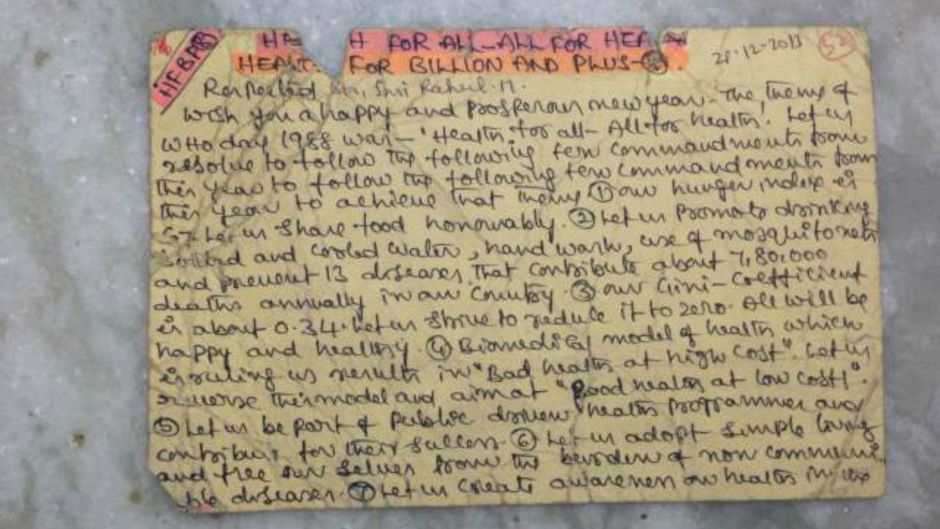 HFBAP89
HE H FOR ALL-ALL FOR HEA
28.12.2013
52
HEAL FOR BILLION AND PLUS-
Respected Sir, Shri Rahul.M.
Wish you a happy and prosperous new year - The theme of
WHO day 1988 was - "Health for all - All for health". Let us
resolve to follow the following few commandments from
this year to follow the following few commandments from
this year to achieve that theme ① our hunger index is
67 Let us share food honourably. ② Let us promote drinking
boiled and cooled water, hand wash, use of mosquito nets
and prevent 13 diseases that contribute about 7,80,000
deaths annually in our country ③ our Gini-Coefficient
is about 0.34. Let us strive to reduce it to zero. All will be
happy and healthy. ④ Biomedical model of health which
is ruling us results in "Bad health at high cost". Let us
reverse this model and aim at "Good health at low cost!".
⑤ Let us be part of public driven health programmes and
contribute for their success. ⑥ Let us adopt simple living
and free our selves from the burden of non communi
ble diseases. ⑦ Let us create awareness on health in